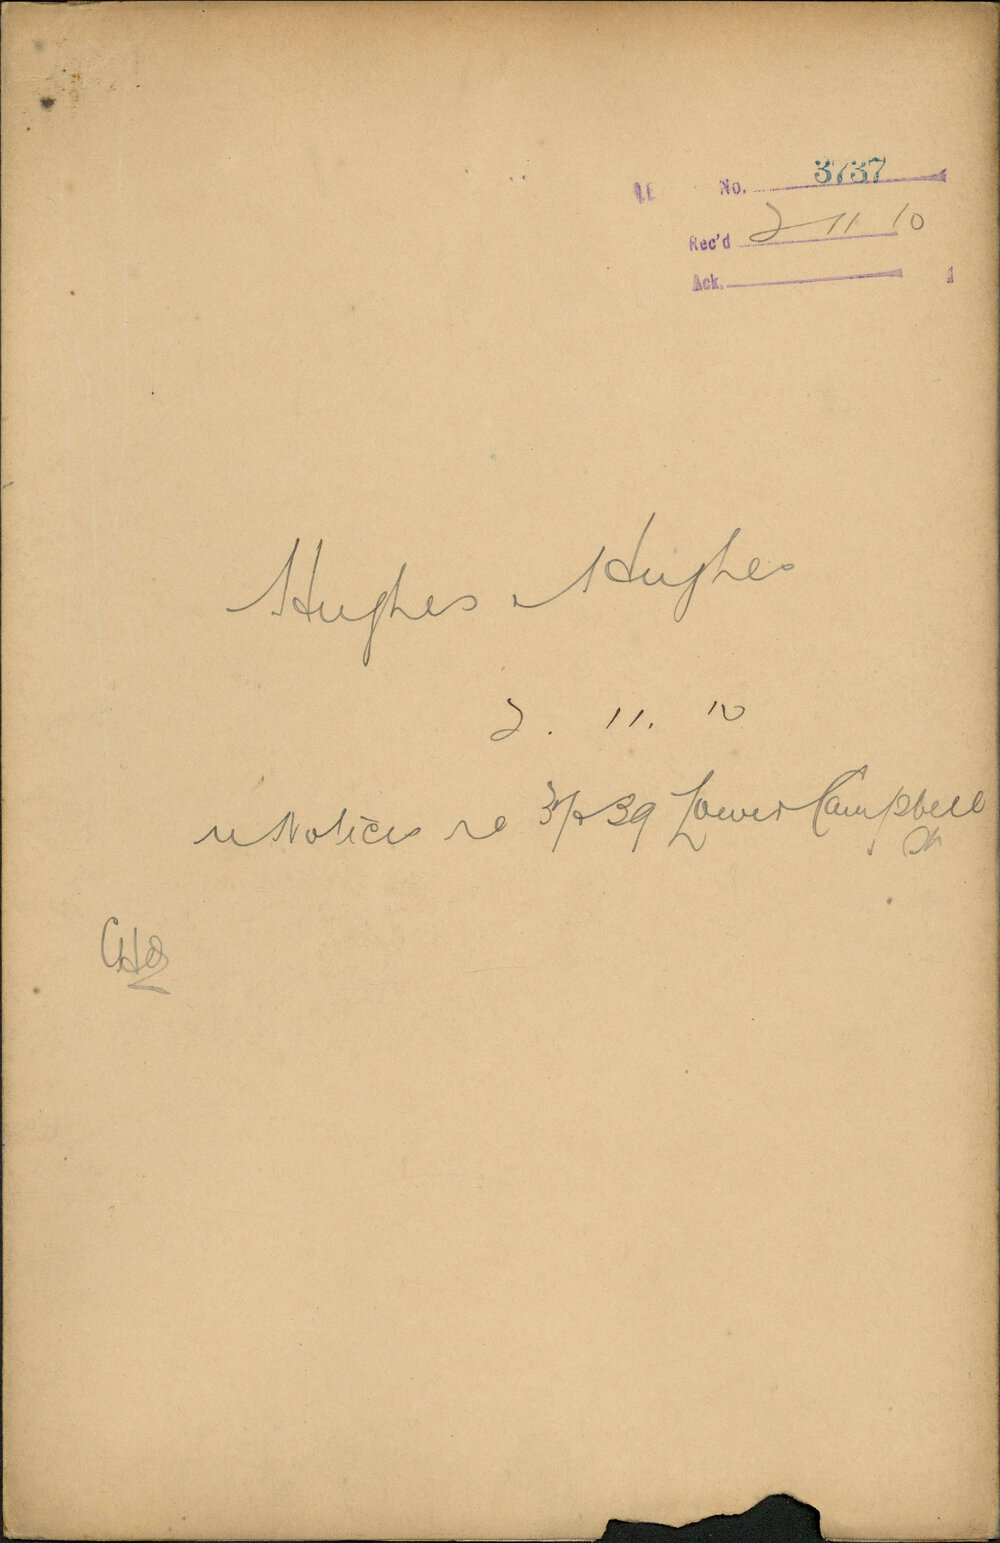 No. 3737
Rec'd 2 11 10
Ack.
Hughes & Hughes
2. 11. 10
Notices re 39 Lower Campbell
St